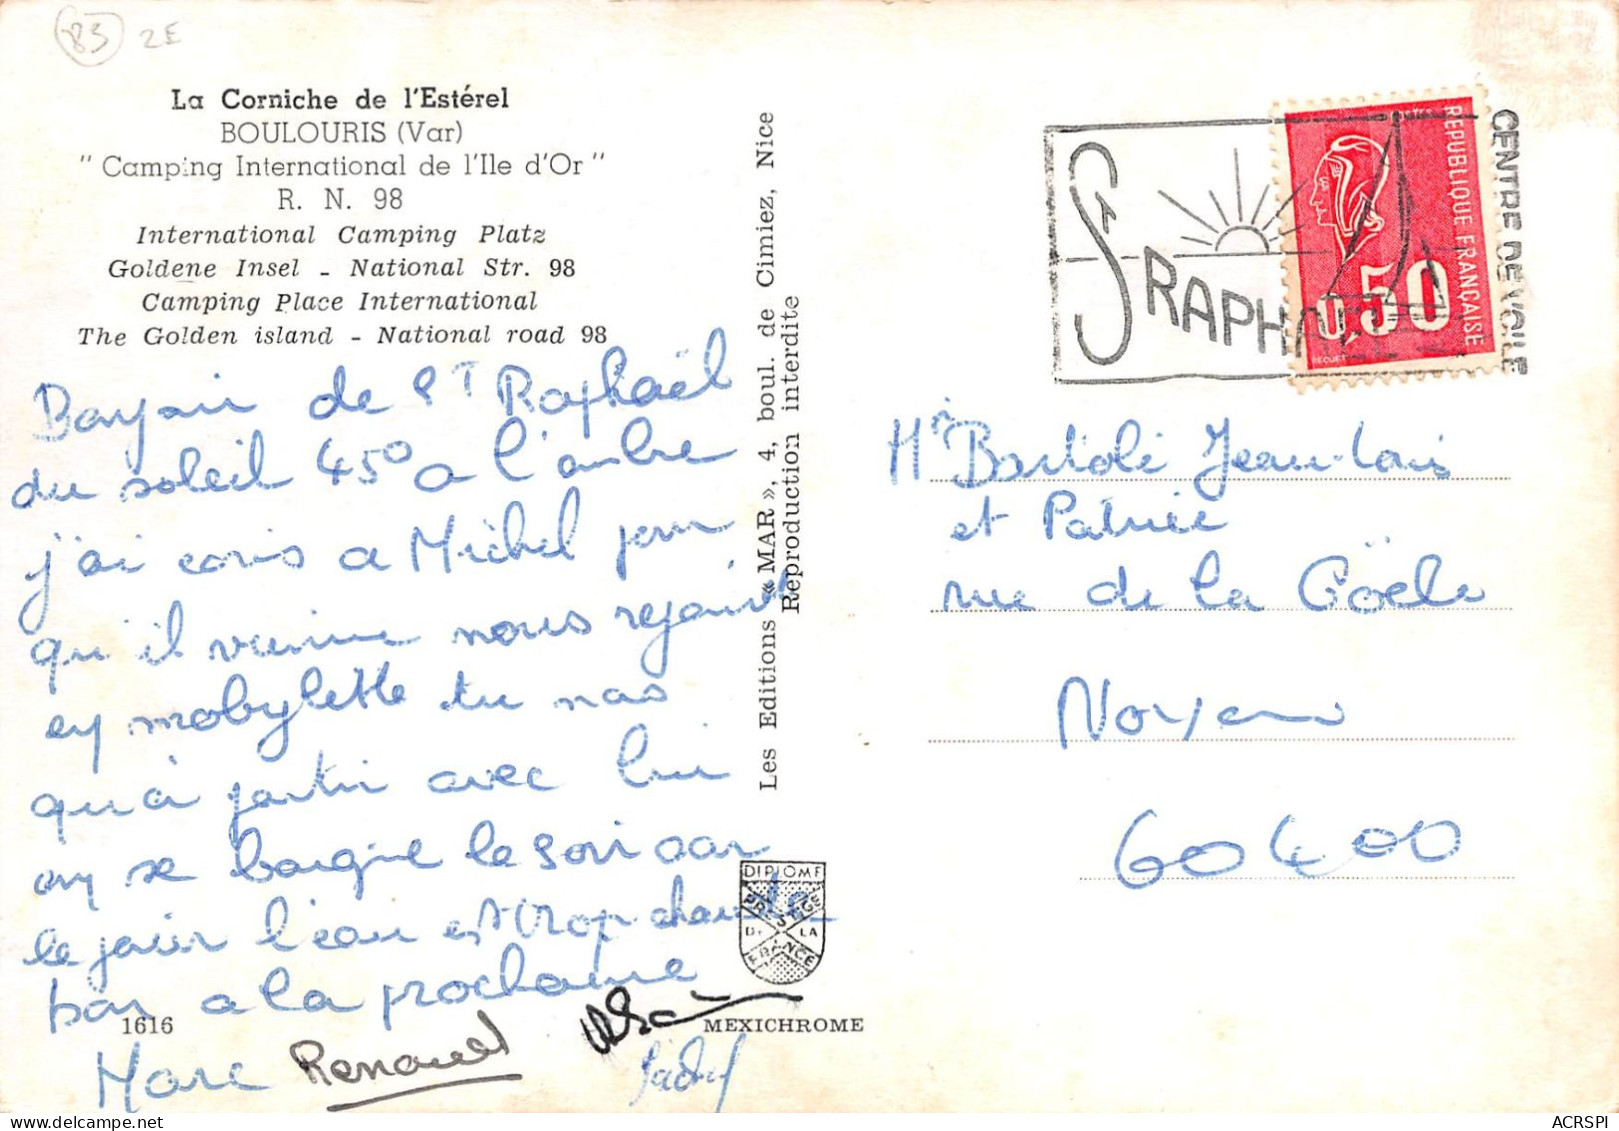 83 2E
La Corniche de l'Estérel
BOULOURIS (Var)
" Camping International de l'Ile d'Or "
R. N. 98
International Camping Platz
Goldene Insel - National Str. 98
Camping Place International
The Golden island - National road 98
Bonjour de St Raphaël
du soleil 45° a l'ombre
j'ai ecris a Michel pour
qu'il vienne nous rejoindre
en mobylette tu nas
qu'à partir avec lui
on se baigne le soir car
le jour l'eau est trop chaude
bon a la prochaine
Marc Renaud
1616
Les Editions « MAR », 4, boul. de Cimiez, Nice
Reproduction interdite
DIPLOME
PRESTIGE
DE LA
FRANCE
MEXICHROME
St RAPHAEL
CENTRE DE VOILE
REPUBLIQUE FRANÇAISE
0,50
BEQUET
Mr Bartoli Jean-Louis
et Patrice
rue de la Goële
Noyon
60400
ACRSPI